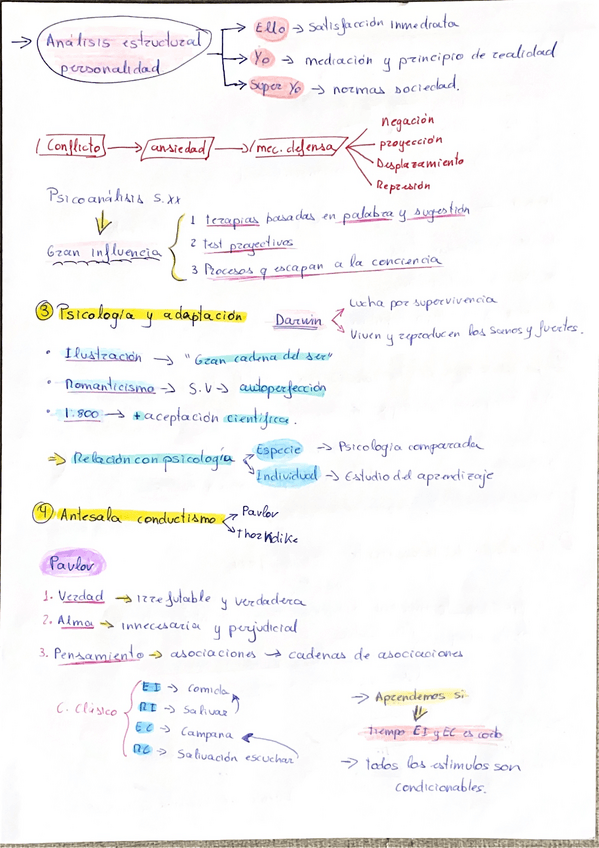 → Análisis estructural personalidad
→ Ello → satisfacción inmediata
→ Yo → mediación y principio de realidad
→ Super Yo → normas sociedad.
Conflicto → ansiedad → mec. defensa
Negación
proyección
Desplazamiento
Represión
Psicoanálisis s. XX
Gran influencia
1 terapias basadas en palabra y sugestión
2 test proyectivos
3 Procesos q escapan a la conciencia
③ Psicología y adaptación
Darwin
Lucha por supervivencia
Viven y reproducen los sanos y fuertes.
• Ilustración → "Gran cadena del ser"
• Romanticismo → S. V → autoperfección
• 1.800 → + aceptación científica.
⇒ Relación con psicología
Especie → Psicología comparada
Individual → Estudio del aprendizaje
④ Antesala conductismo
Pavlov
Thorndike
Pavlov
1. Verdad → irrefutable y verdadera
2. Alma → innecesaria y perjudicial
3. Pensamiento → asociaciones → cadenas de asociaciones
C. Clásico
EI → Comida
RI → Salivar
EC → Campana
RC → Salivación escuchar
→ Aprendemos si
Tiempo EI y EC es corto
→ Todos los estimulos son
condicionables.